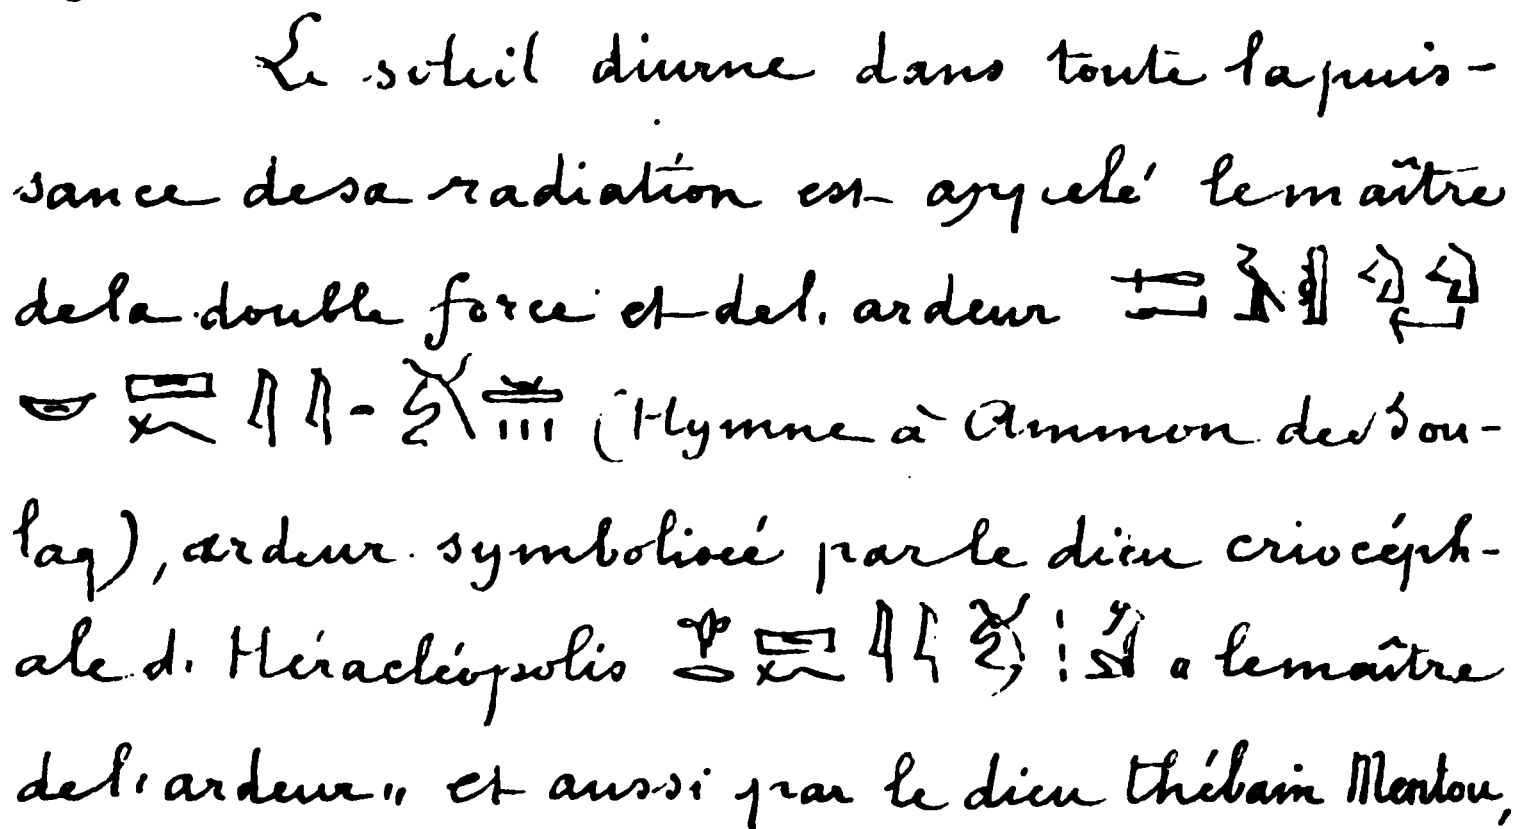 Le soleil diurne dans toute la puis-
sance de sa radiation est appelé le maître
de la double force et de l'ardeur
(Hymne à Ammon de Bou-
laq), ardeur symbolisée par le dieu criocéph-
ale d'Héracléopolis " le maître
de l'ardeur " et aussi par le dieu thébain Mentou,